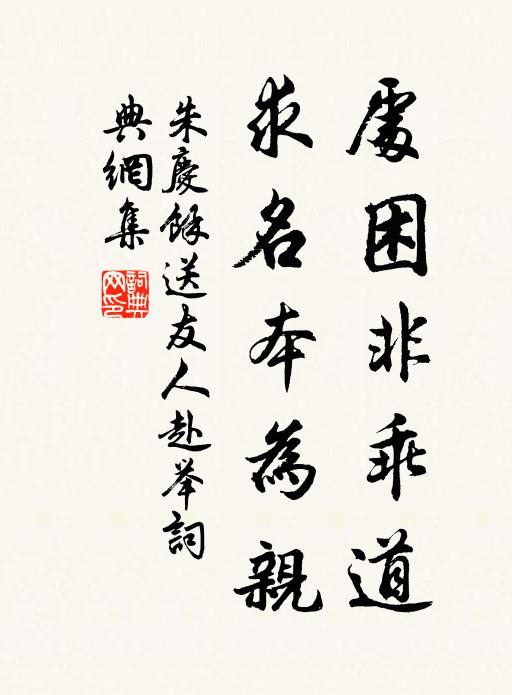 處困非乖道
求名本為親
朱慶餘送友人赴举詞
典網集
詞典网印